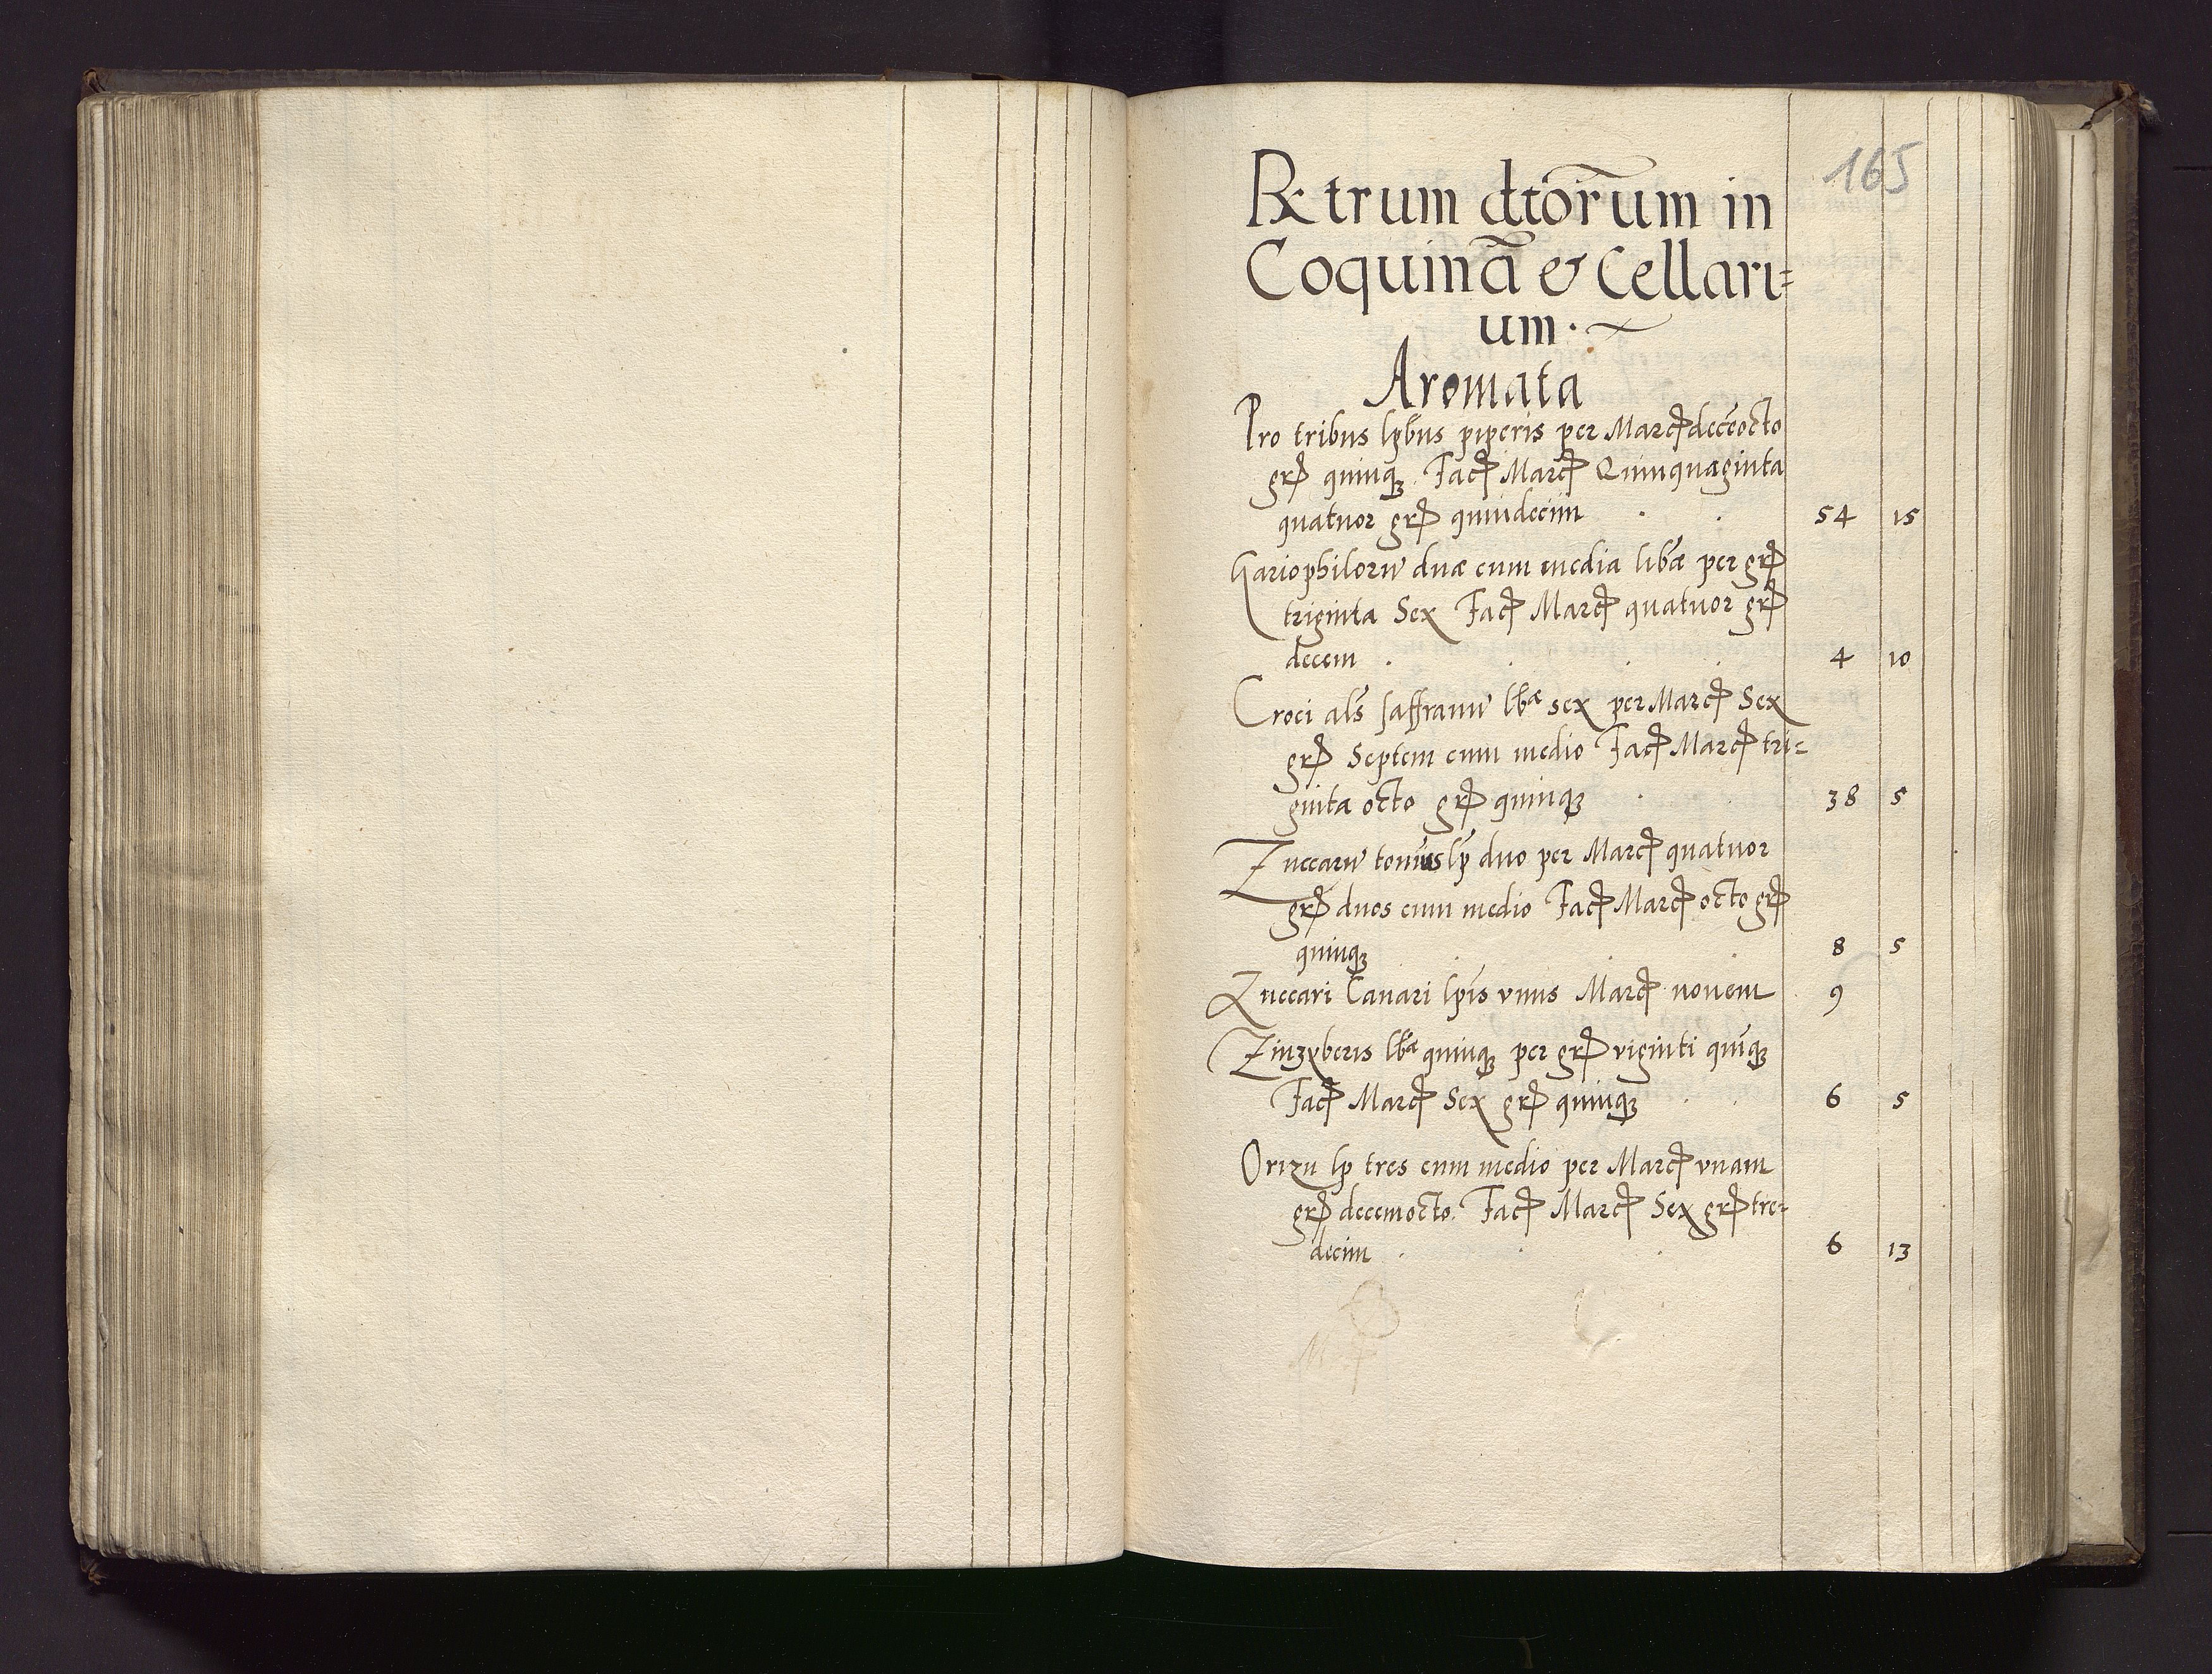 165
Rx trum dtorum in
Coquinā & Cellari=
um.
Aromata
Pro tribus lpb̃us piperis per Marcſ decēocto
grſ quinqꝫ. Facſ Marcſ Quinquaginta
quatuor grſ quindecim . . 54 15
Gariophiloru̅ duæ cum media libæ per grſ
triginta Sex Facſ Marcſ quatuor grſ
decem . . . . 4 10
Croci al̃s saffranu̅ lbæ sex per Marcſ Sex
grſ Septem cum medio Facſ Marcſ tri=
ginta octo grſ quinqꝫ . . 38 5
Zuccaru̅ lp̃ duo per Marcſ quatuor
grſ duos cum medio Facſ Marcſ octo grſ
quinqꝫ . . . . 8 5
Zuccari Canari lp̃is vnius Marcſ nouem 9
Zinzyberis lbæ quinqꝫ per grſ viginti quīqꝫ
Facſ Marcſ Sex grſ quinqꝫ . . 6 5
Orizu lp tres cum medio per Marcſ vnam
grſ decemocto. Facſ Marcſ Sex grſ tre=
decim . . . 6 13